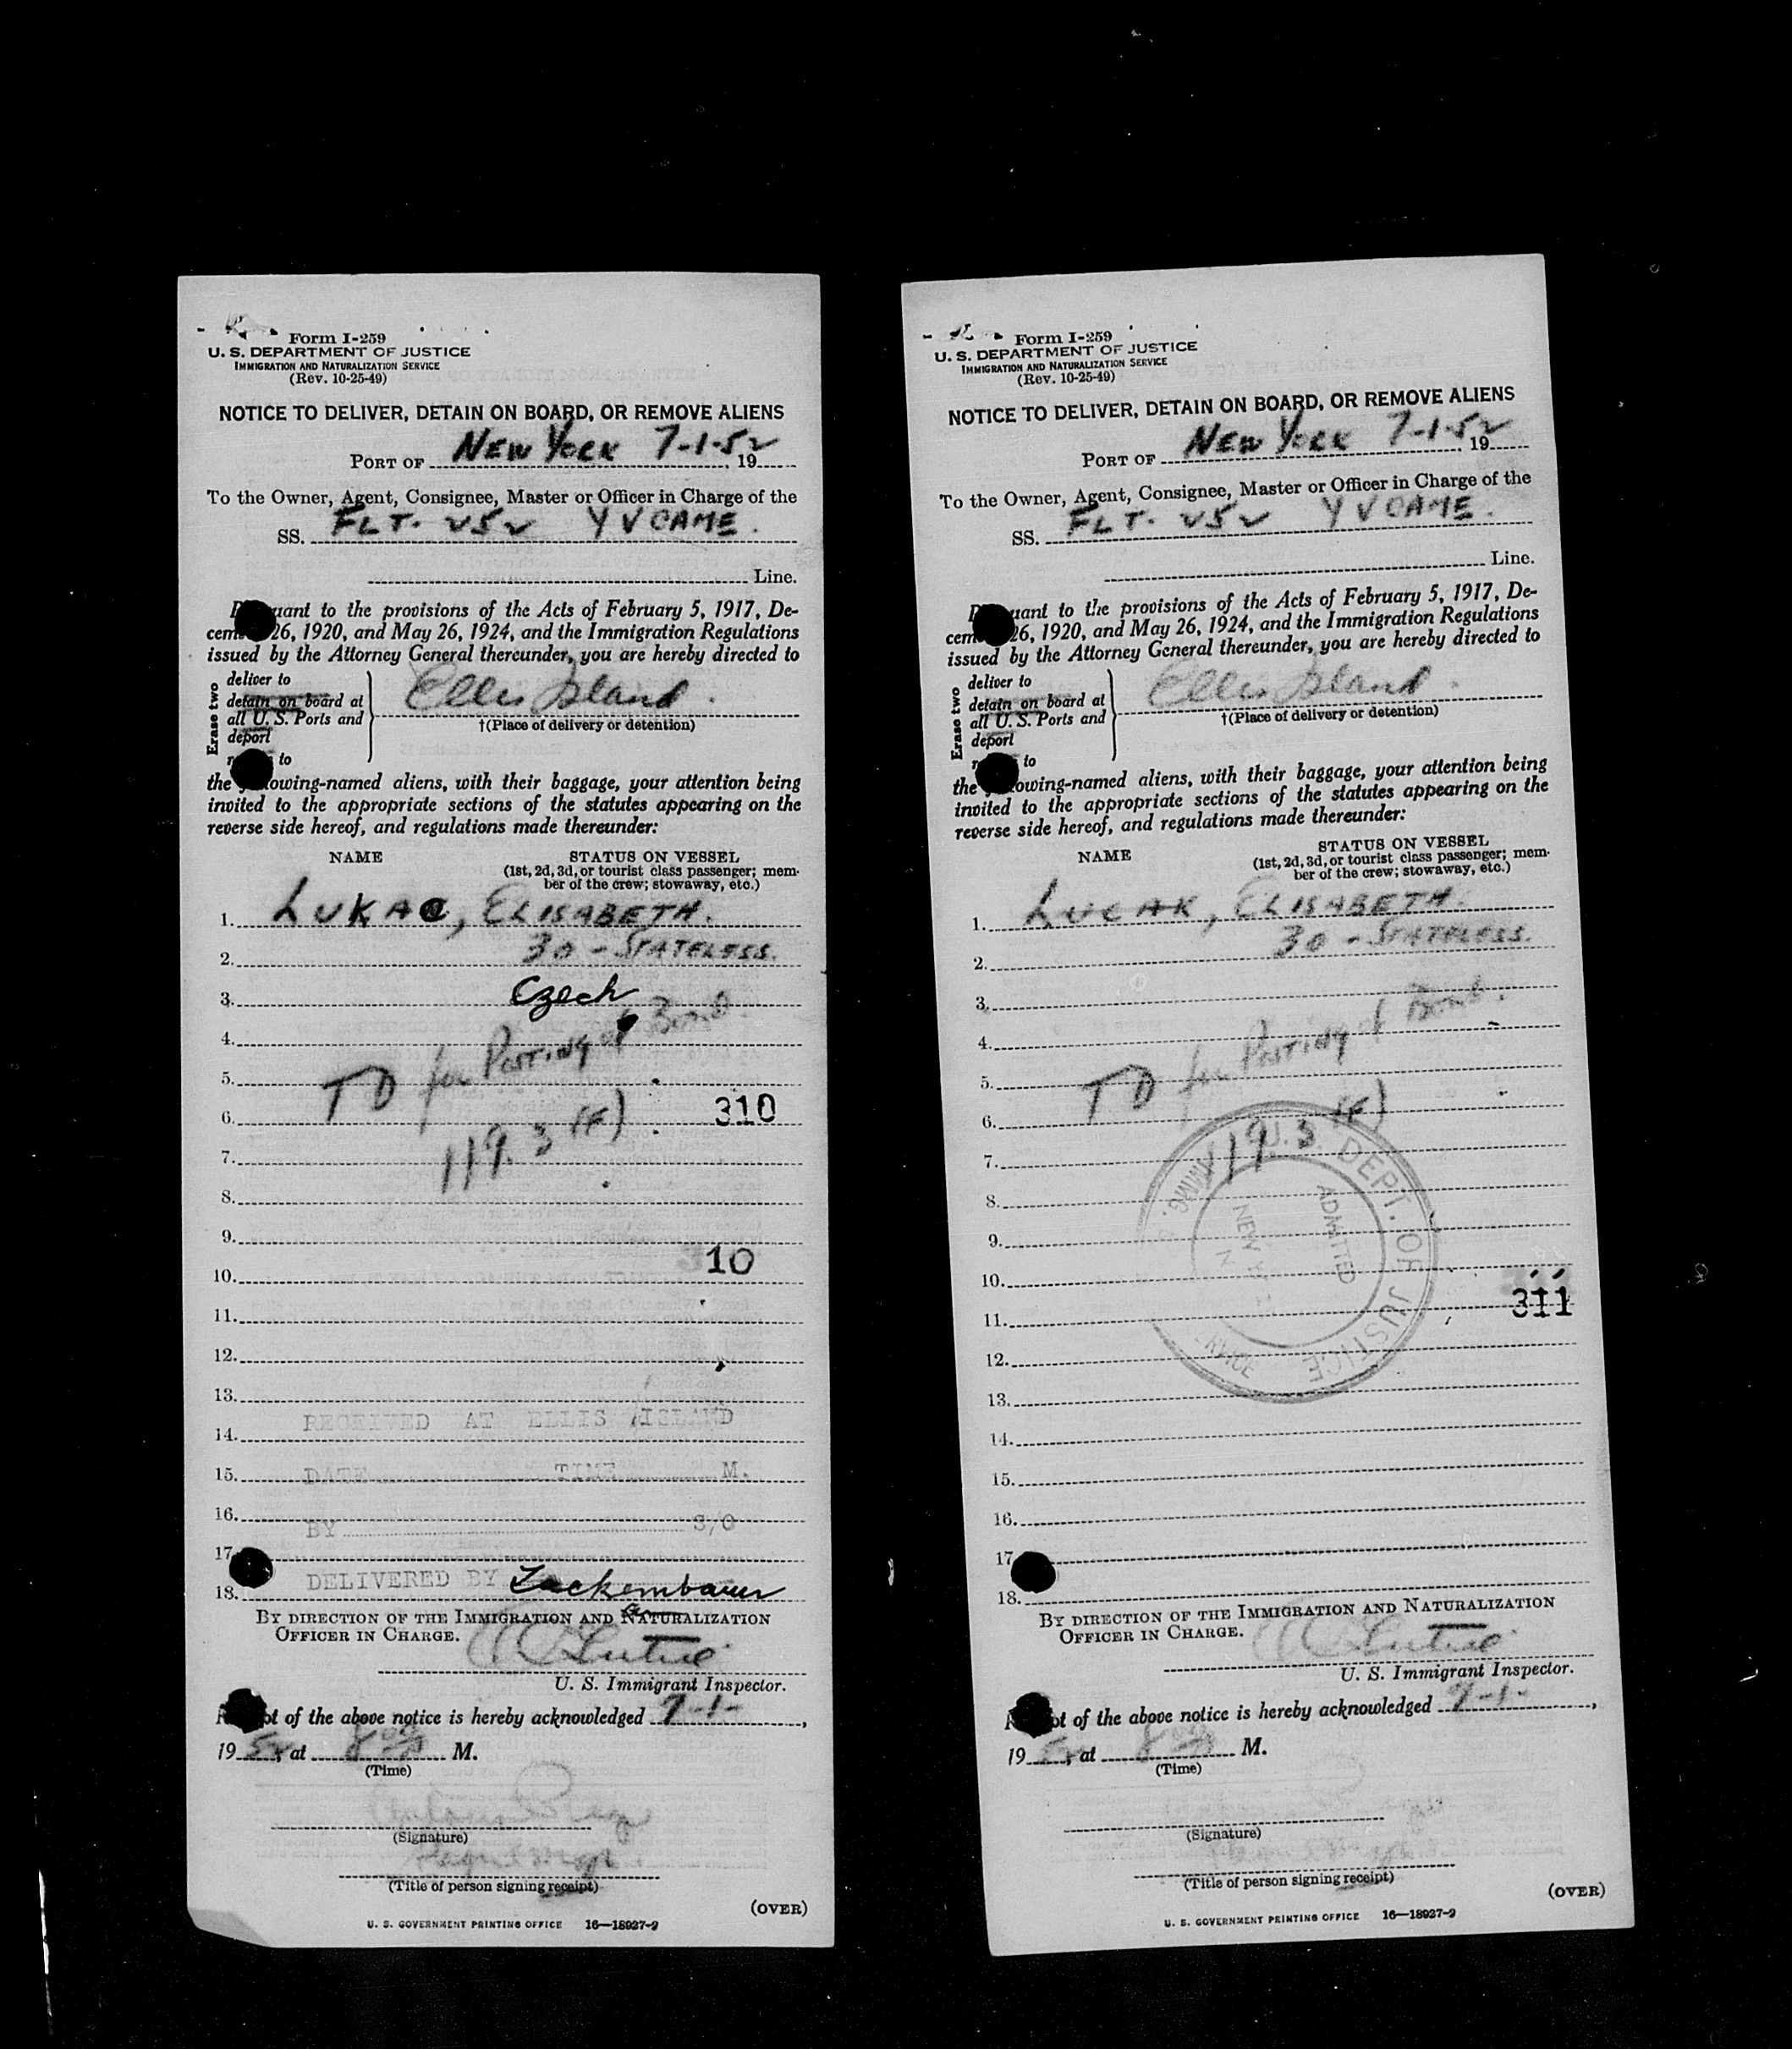 Form I-259
U. S. DEPARTMENT OF JUSTICE
IMMIGRATION AND NATURALIZATION SERVICE
(Rev. 10-25-49)
NOTICE TO DELIVER, DETAIN ON BOARD, OR REMOVE ALIENS
PORT OF NEW YORK 7-1-52, 19
To the Owner, Agent, Consignee, Master or Officer in Charge of the
SS. FLT. 252 YVCAME.
Line.
uant to the provisions of the Acts of February 5, 1917, De-
cem 26, 1920, and May 26, 1924, and the Immigration Regulations
issued by the Attorney General thereunder, you are hereby directed to
Erase two
deliver to
detain on board at
all U. S. Ports and
deport
to
Ellis Island
†(Place of delivery or detention)
the owing-named aliens, with their baggage, your attention being
invited to the appropriate sections of the statutes appearing on the
reverse side hereof, and regulations made thereunder:
NAME STATUS ON VESSEL
(1st, 2d, 3d, or tourist class passenger; mem-
ber of the crew; stowaway, etc.)
1. LUKAC, ELISABETH.
2. 30 - STATELESS.
3. Czech
4.
5. TD for Posting of Bond
6. 310
7. 119.3 (F)
8.
9.
10. 10
11.
12.
13.
RECEIVED AT ELLIS ISLAND
14.
15. DATE TIME M.
16.
BY S/O
17.
DELIVERED BY Zackembauer
18.
BY DIRECTION OF THE IMMIGRATION AND NATURALIZATION
OFFICER IN CHARGE.
U. S. Immigrant Inspector.
pt of the above notice is hereby acknowledged 7-1-,
19 52, at 8 M.
(Time)
(Signature)
(Title of person signing receipt)
(OVER)
U. S. GOVERNMENT PRINTING OFFICE 16—18927-2
Form I-259
U. S. DEPARTMENT OF JUSTICE
IMMIGRATION AND NATURALIZATION SERVICE
(Rev. 10-25-49)
NOTICE TO DELIVER, DETAIN ON BOARD, OR REMOVE ALIENS
PORT OF NEW YORK 7-1-52, 19
To the Owner, Agent, Consignee, Master or Officer in Charge of the
SS. FLT. 252 YVCAME.
Line.
uant to the provisions of the Acts of February 5, 1917, De-
cem 26, 1920, and May 26, 1924, and the Immigration Regulations
issued by the Attorney General thereunder, you are hereby directed to
Erase two
deliver to
detain on board at
all U. S. Ports and
deport
to
Ellis Island
†(Place of delivery or detention)
the owing-named aliens, with their baggage, your attention being
invited to the appropriate sections of the statutes appearing on the
reverse side hereof, and regulations made thereunder:
NAME STATUS ON VESSEL
(1st, 2d, 3d, or tourist class passenger; mem-
ber of the crew; stowaway, etc.)
1. LUCAK, ELISABETH.
2. 30 - STATELESS.
3.
4.
5. TD for Posting of Bond.
6.
7. 119.3 (F)
U.S. DEPT. OF JUSTICE
IMMIG.
ADMITTED
NEW Y
8.
9.
10.
11. 311
12.
13.
14.
15.
16.
17.
18.
BY DIRECTION OF THE IMMIGRATION AND NATURALIZATION
OFFICER IN CHARGE.
U. S. Immigrant Inspector.
pt of the above notice is hereby acknowledged 7-1-,
19 52, at 8 M.
(Time)
(Signature)
(Title of person signing receipt)
(OVER)
U. S. GOVERNMENT PRINTING OFFICE 16—18927-2